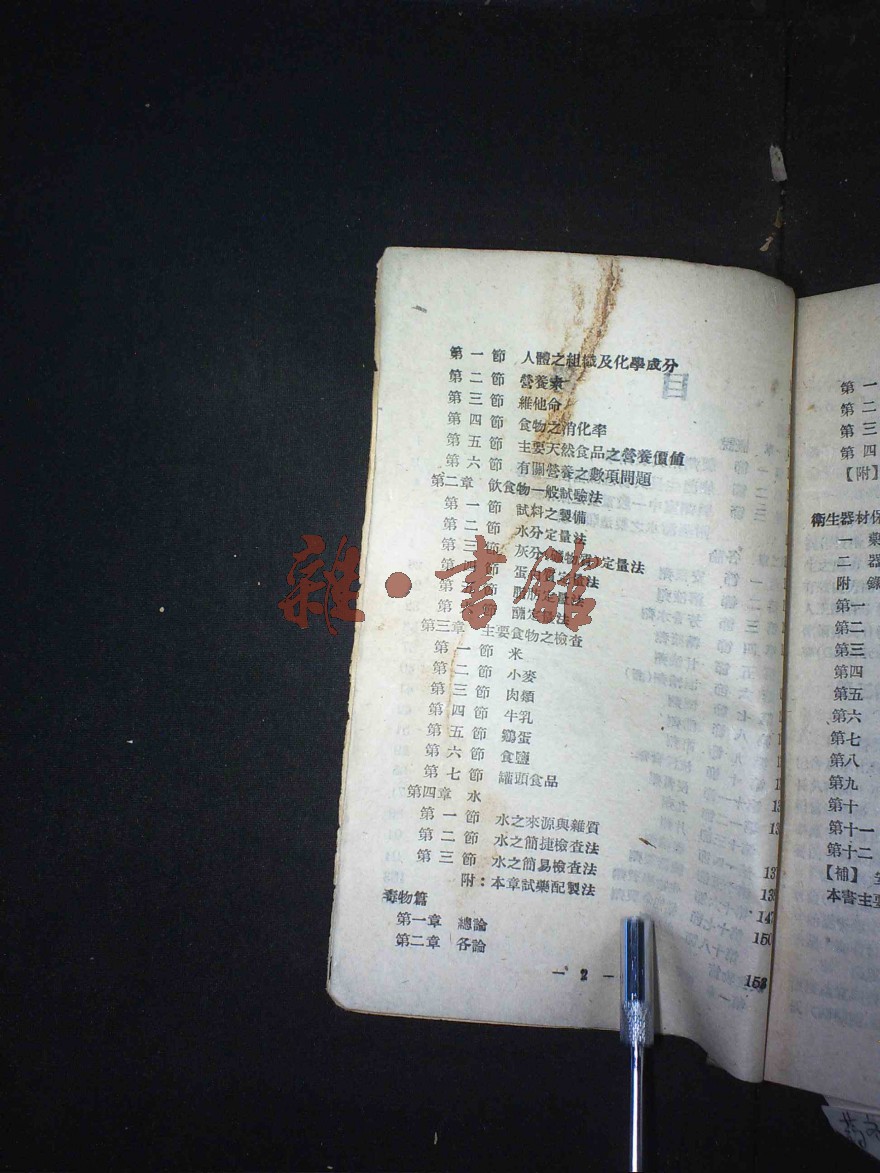 第一節 人體之組織及化學成分
第二節 營養素
第三節 維他命
第四節 食物之消化率
第五節 主要天然食品之營養價值
第六節 有關營養之數項問題
第二章 飲食物一般試驗法
第一節 試料之製備
第二節 水分定量法
第三節 灰分 定量法
第四節 蛋白質定量法
第五節 脂肪定量法
第 節 醣定量法
第三章 主要食物之檢查
第一節 米
第二節 小麥
第三節 肉類
第四節 牛乳
第五節 鷄蛋
第六節 食鹽
第七節 罐頭食品
第四章 水
第一節 水之來源與雜質
第二節 水之簡捷檢查法
第三節 水之簡易檢查法
附：本章試藥配製法
毒物篇
第一章 總論
第二章 各論
— 2 —
150
153
雜·書館
第一
第二
第三
第四
【附】
衛生器材保
一 藥
二 器
附 錄
第一
第二
第三
第四
第五
第六
第七
第八
第九
第十
第十一
第十二
【補】
本書主要